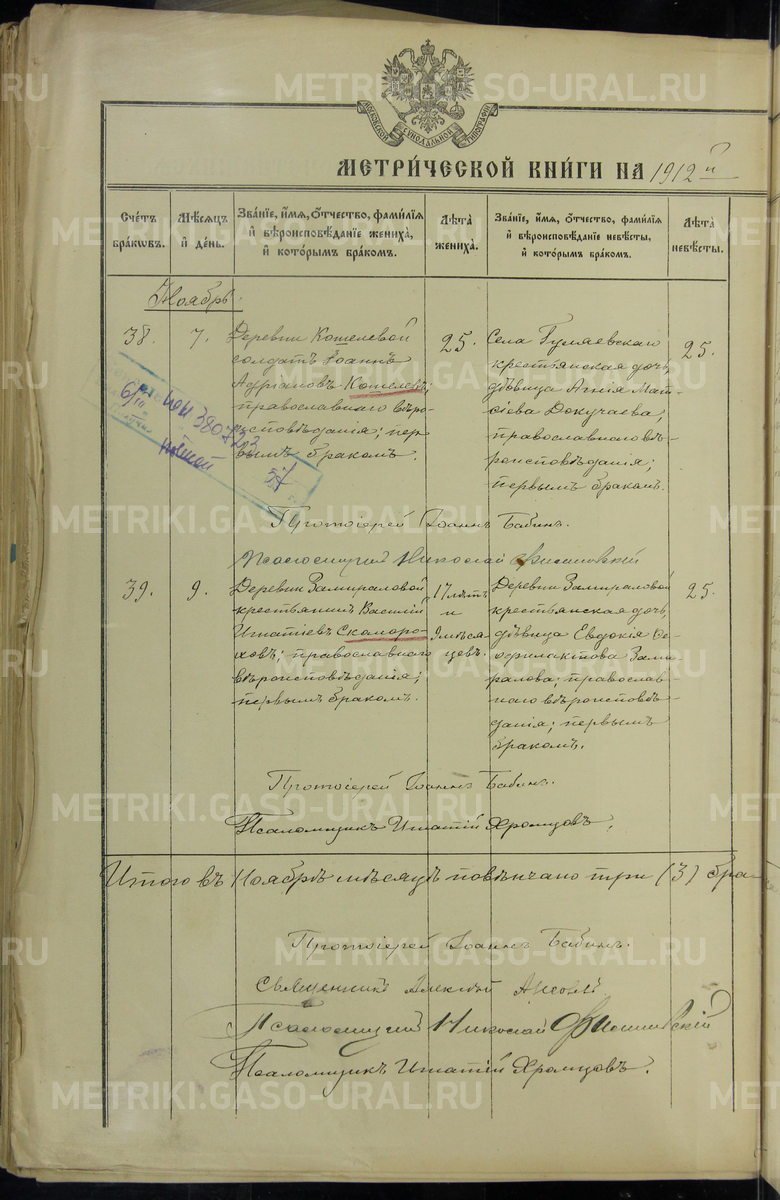 МОСКОВСКОЙ СѴНОДАЛЬНОЙ ТИПОГРАФІИ
МЕТРИ́ЧЕСКОЙ КНИ́ГИ НА 1912 й
Сче́тъ бра́кѡвъ.
Мѣ́сѧцъ и҆ де́нь.
Зва́нїе, и҆́мѧ, ѻ҆́тчество, фами́лїѧ и҆ вѣроисповѣ́данїе жениха̀, и҆ кото́рымъ бра́комъ.
Лѣ̑та жениха̀.
Зва́нїе, и҆́мѧ, ѻ҆́тчество, фами́лїѧ и҆ вѣроисповѣ́данїе невѣ́сты, и҆ кото́рымъ бра́комъ.
Лѣ̑та невѣ́сты.
Ноябрь.
38.
7.
Деревни Кошелевой
солдатъ Іоаннъ
Адріановъ Кошелевъ;
православнаго вѣро-
исповѣданія; пер
вымъ бракомъ.
25.
Села Гуляевскаго
крестьянская дочь,
дѣвица Агнія Мат-
ѳіева Докучаева,
православнаго вѣ-
роисповѣданія;
первымъ бракомъ.
25.
Протоіерей Іоаннъ Бабинъ.
Псаломщикъ Николай
39.
9.
Деревни Замираловой
крестьянинъ Василій
Игнатіевъ Скоморо-
ховъ; православнаго
вѣроисповѣданія;
первымъ бракомъ.
17 лѣтъ
и
9 мѣся
цевъ.
Деревни Замираловой
крестьянская дочь,
дѣвица Евдокія Ѳе-
офилактова Зами-
ралова; православ-
наго вѣроисповѣ-
данія; первымъ
бракомъ.
25.
Протоіерей Іоаннъ Бабинъ.
Псаломщикъ Игнатій Хромцовъ.
Итого въ Ноябрѣ мѣсяцѣ повѣнчано три (3) бра-
Протоіерей Іоаннъ Бабинъ.
Священникъ Алексій
Псаломщикъ Николай
Псаломщикъ Игнатій Хромцовъ.
METRIKI.GASO-URAL.RU